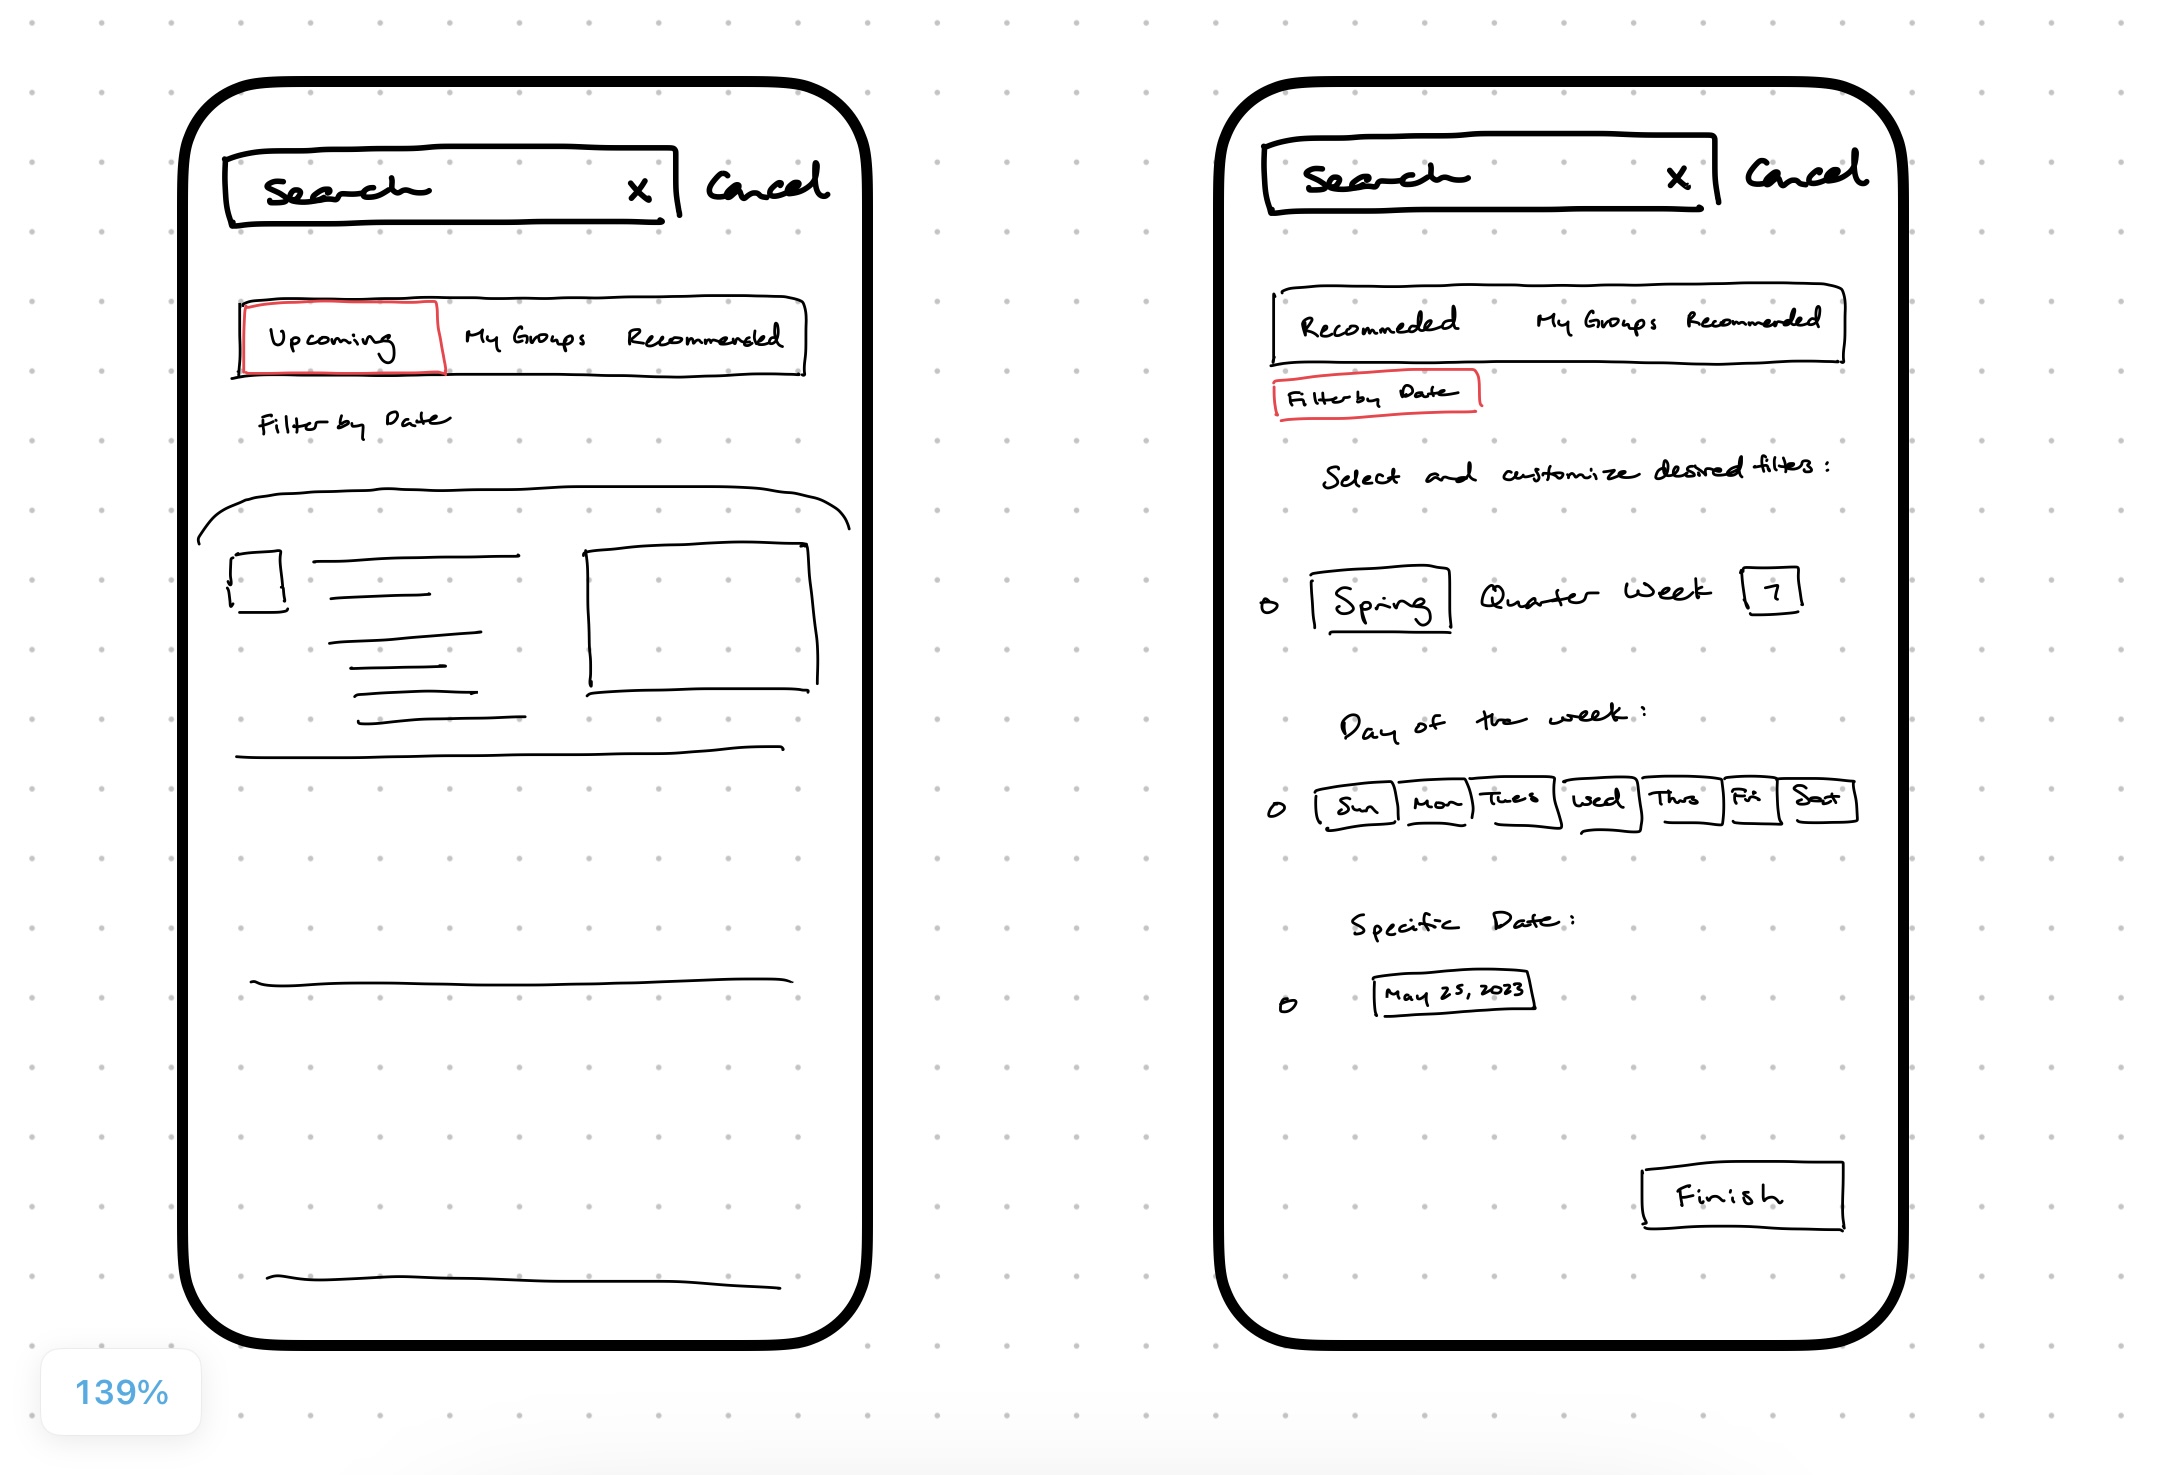 Search x Cancel
Upcoming My Groups Recommended
Filter by Date
Search x Cancel
Recommeded My Groups Recommended
Filter by Date
Select and customize desired filters:
Spring Quarter Week 7
Day of the week:
Sun Mon Tues Wed Thurs Fri Sat
Specific Date:
May 25, 2023
Finish
139%